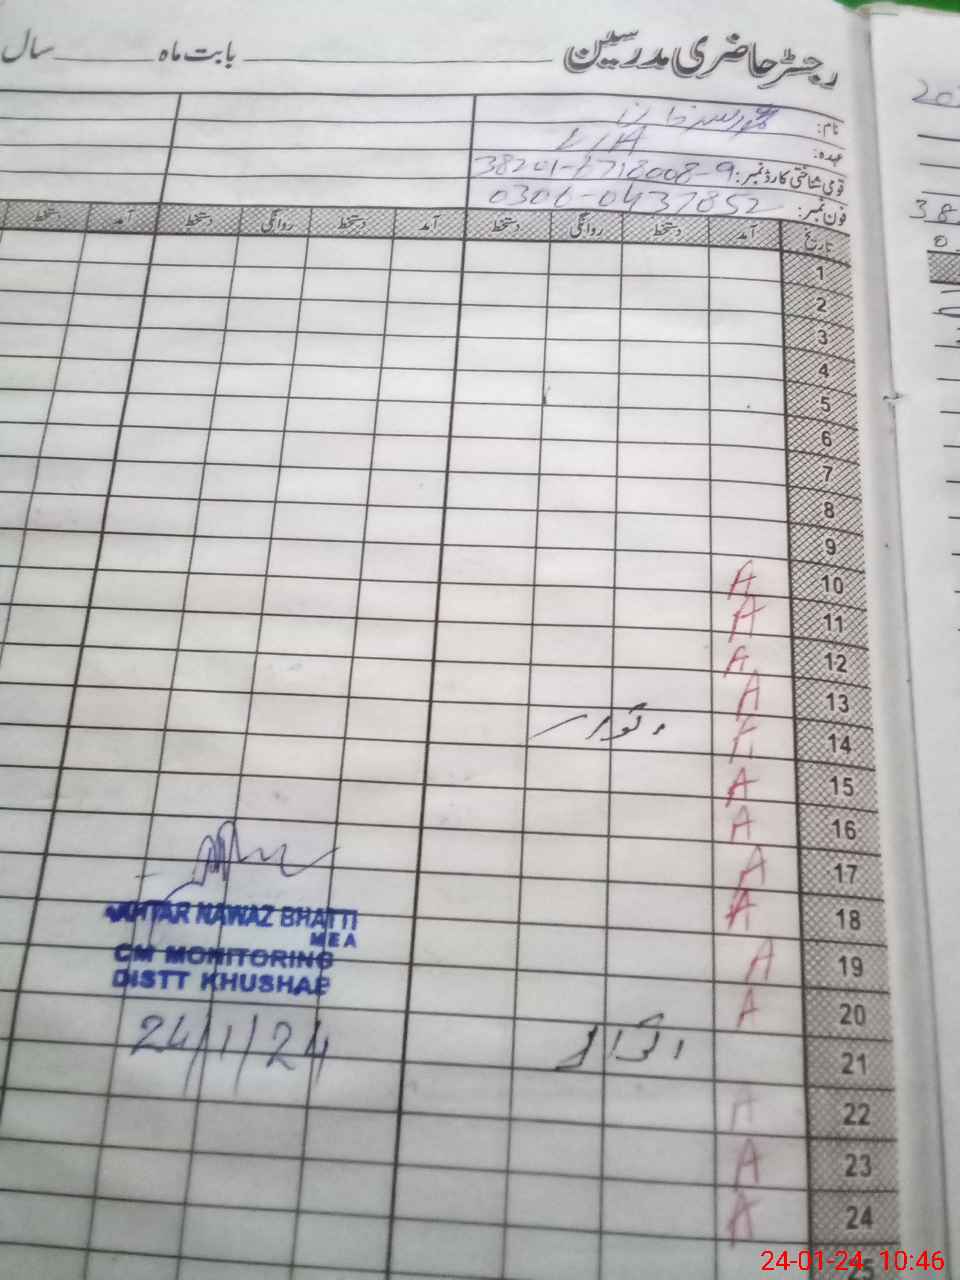 رجسٹر حاضری مدرسین بابت ماہ ــــــ سال
نام:
عہدہ:
قومی شناختی کارڈ نمبر: 38201-8718008-9
فون نمبر: 0306-0437852
تاریخ آمد دستخط روانگی دستخط آمد دستخط روانگی دستخط آمد دستخط
1
2
3
4
5
6
7
8
9
10 A
11 A
12 A
13 A
14 A اتوار
15 A
16 A
17 A
18 A
19 A
20 A
21 اتوار
22 A
23 A
24 A
25
AKHTAR NAWAZ BHATTI
MEA
CM MONITORING
DISTT KHUSHAB
24/1/24
20
38
24-01-24 10:46